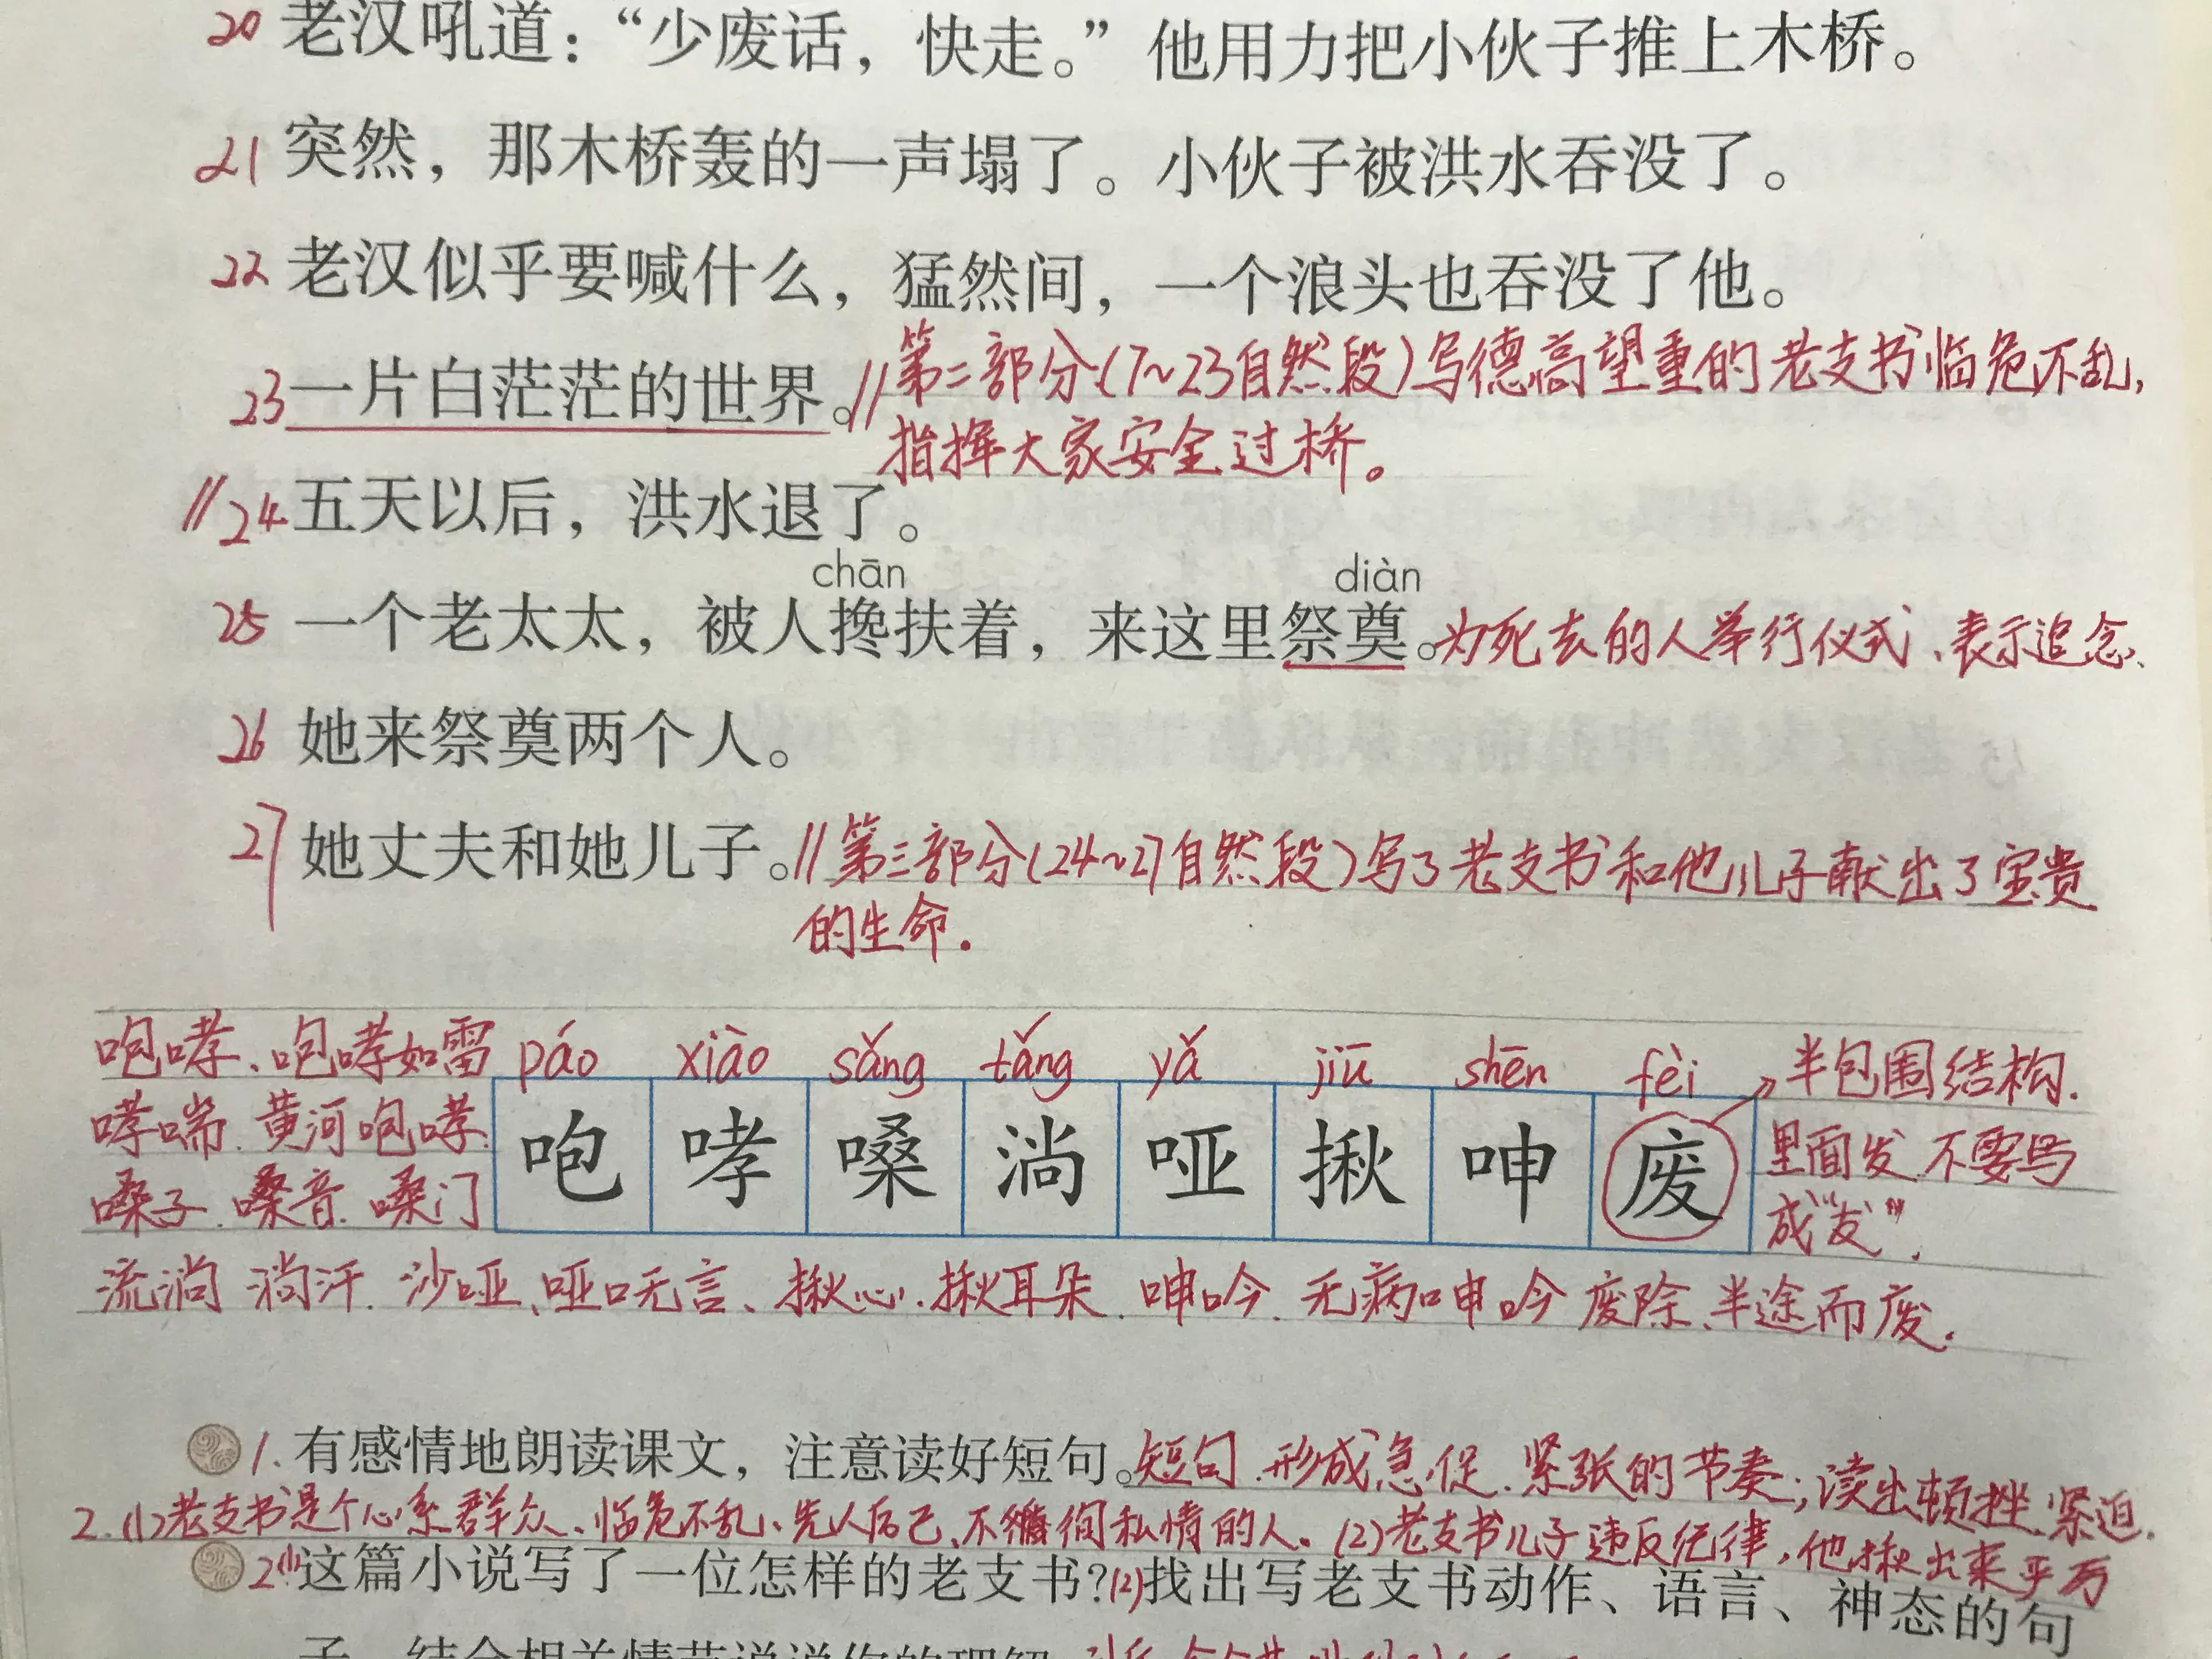 20 老汉吼道：“少废话，快走。”他用力把小伙子推上木桥。
21 突然，那木桥轰的一声塌了。小伙子被洪水吞没了。
22 老汉似乎要喊什么，猛然间，一个浪头也吞没了他。
23 一片白茫茫的世界。// 第二部分(7~23自然段)写德高望重的老支书临危不乱，
指挥大家安全过桥。
// 24 五天以后，洪水退了。
chān diàn
25 一个老太太，被人搀扶着，来这里祭奠。为死去的人举行仪式、表示追念、
26 她来祭奠两个人。
27 她丈夫和她儿子。// 第三部分(24~27自然段)写了老支书和他儿子献出了宝贵
的生命.
咆哮、咆哮如雷 páo xiào sǎng tǎng yǎ jiū shēn fèi 半包围结构.
哮喘. 黄河咆哮.
嗓子. 嗓音. 嗓门
咆 哮 嗓 淌 哑 揪 呻 废
里面发 不要写
成“友”.
流淌 淌汗. 沙哑、哑口无言、揪心.揪耳朵. 呻吟. 无病呻吟 废除.半途而废.
1. 有感情地朗读课文，注意读好短句。短句.形成急促.紧张的节奏;读出顿挫.紧迫.
2.(1)老支书是个心系群众、临危不乱、先人后己、不徇私情的人。(2)老支书儿子违反纪律,他揪出来
2(1)这篇小说写了一位怎样的老支书?(2)找出写老支书动作、语言、神态的句
子，结合相关情节说说你的理解